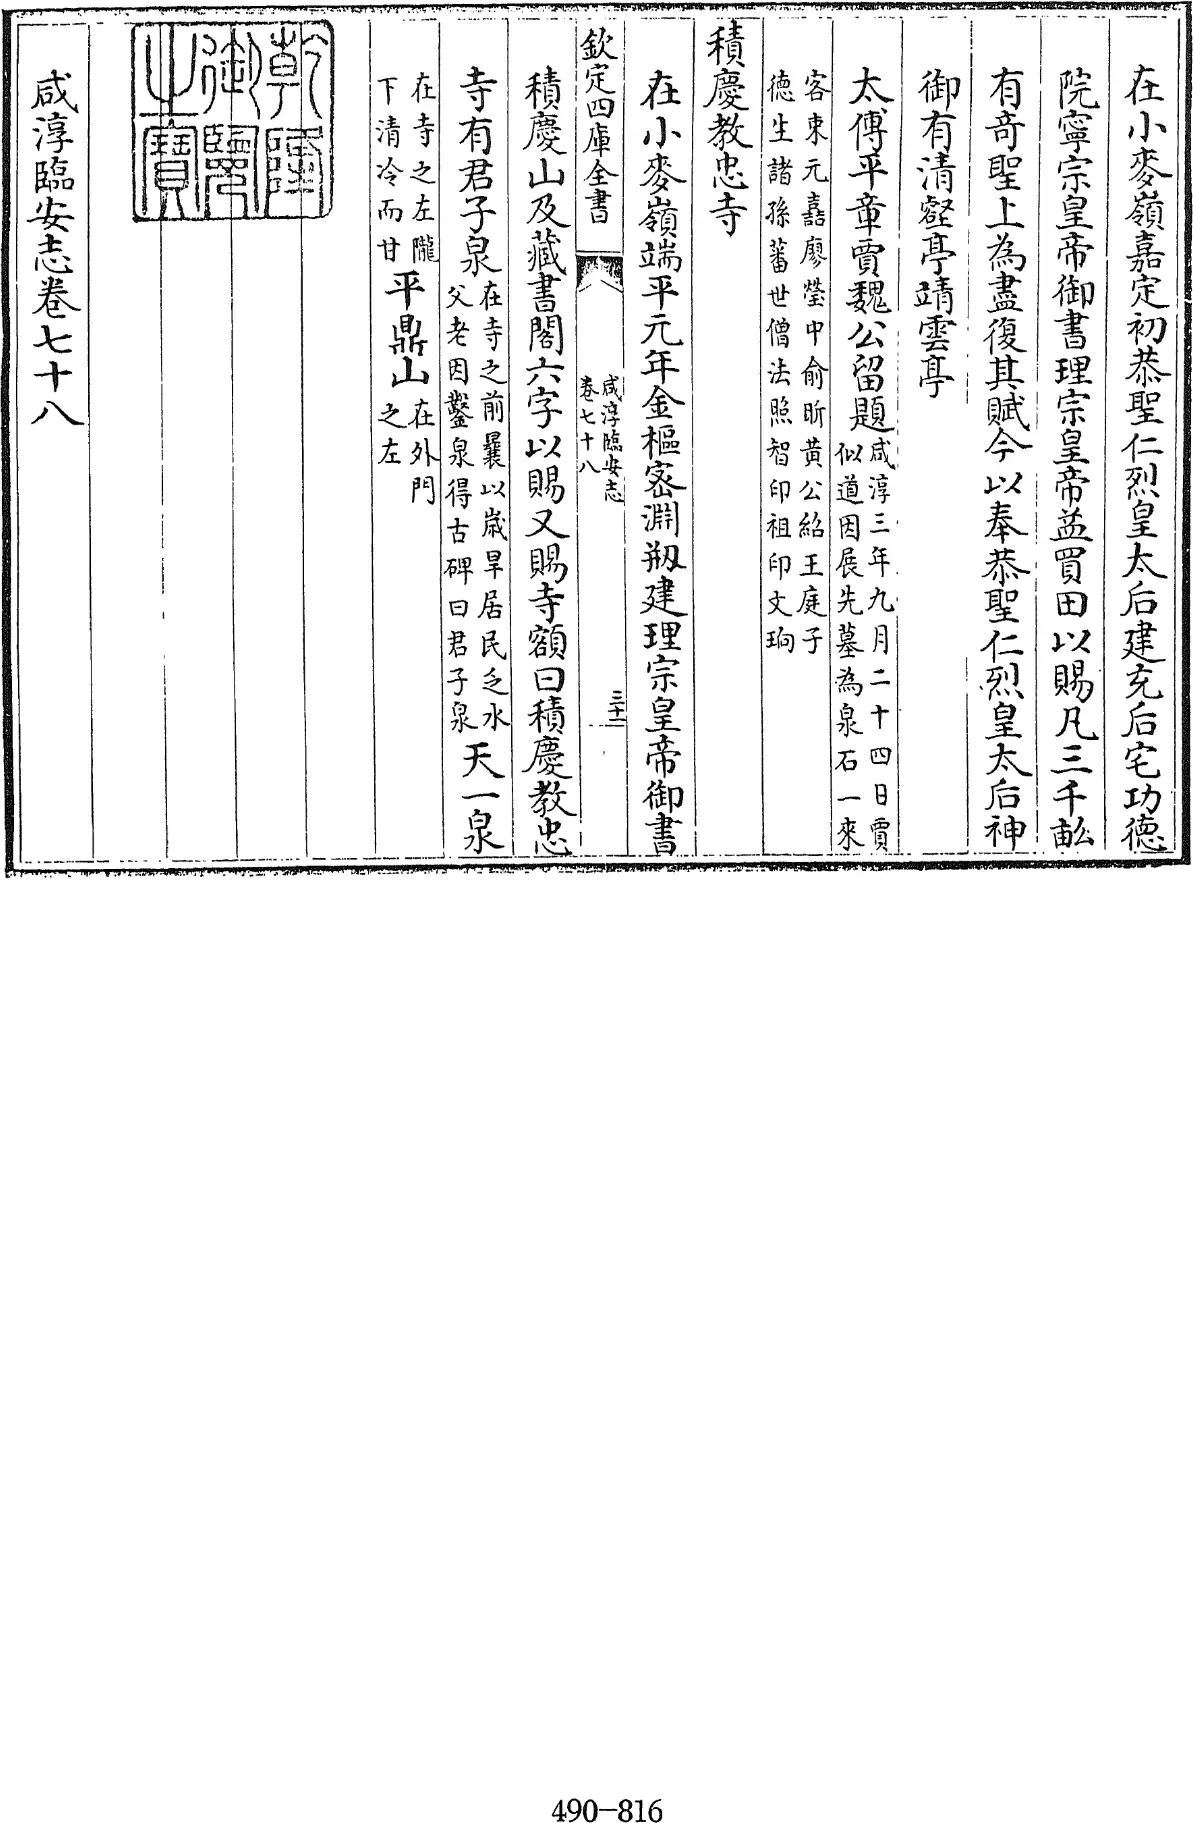 在小麥嶺嘉定初恭聖仁烈皇太后建充后宅功德
院寧宗皇帝御書理宗皇帝益買田以賜凡三千畝
有奇聖上為盡復其賦今以奉恭聖仁烈皇太后神
御有清壑亭靖雲亭
太傅平章賈魏公留題咸淳三年九月二十四日賈
似道因展先墓為泉石一來
客東元嚞廖瑩中俞昕黃公紹王庭子
德生諸孫蕃世僧法照智印祖印文珦
積慶教忠寺
在小麥嶺端平元年金樞宻淵剏建理宗皇帝御書
欽定四庫全書
咸淳臨安志
卷七十八
三十二
積慶山及藏書閣六字以賜又賜寺額曰積慶教忠
寺有君子泉在寺之前曩以歲旱居民乏水
父老因鑿泉得古碑曰君子泉天一泉
在寺之左隴
下清冷而甘平鼎山在外門
之左
乾隆御覽之寶
咸淳臨安志卷七十八
490-816